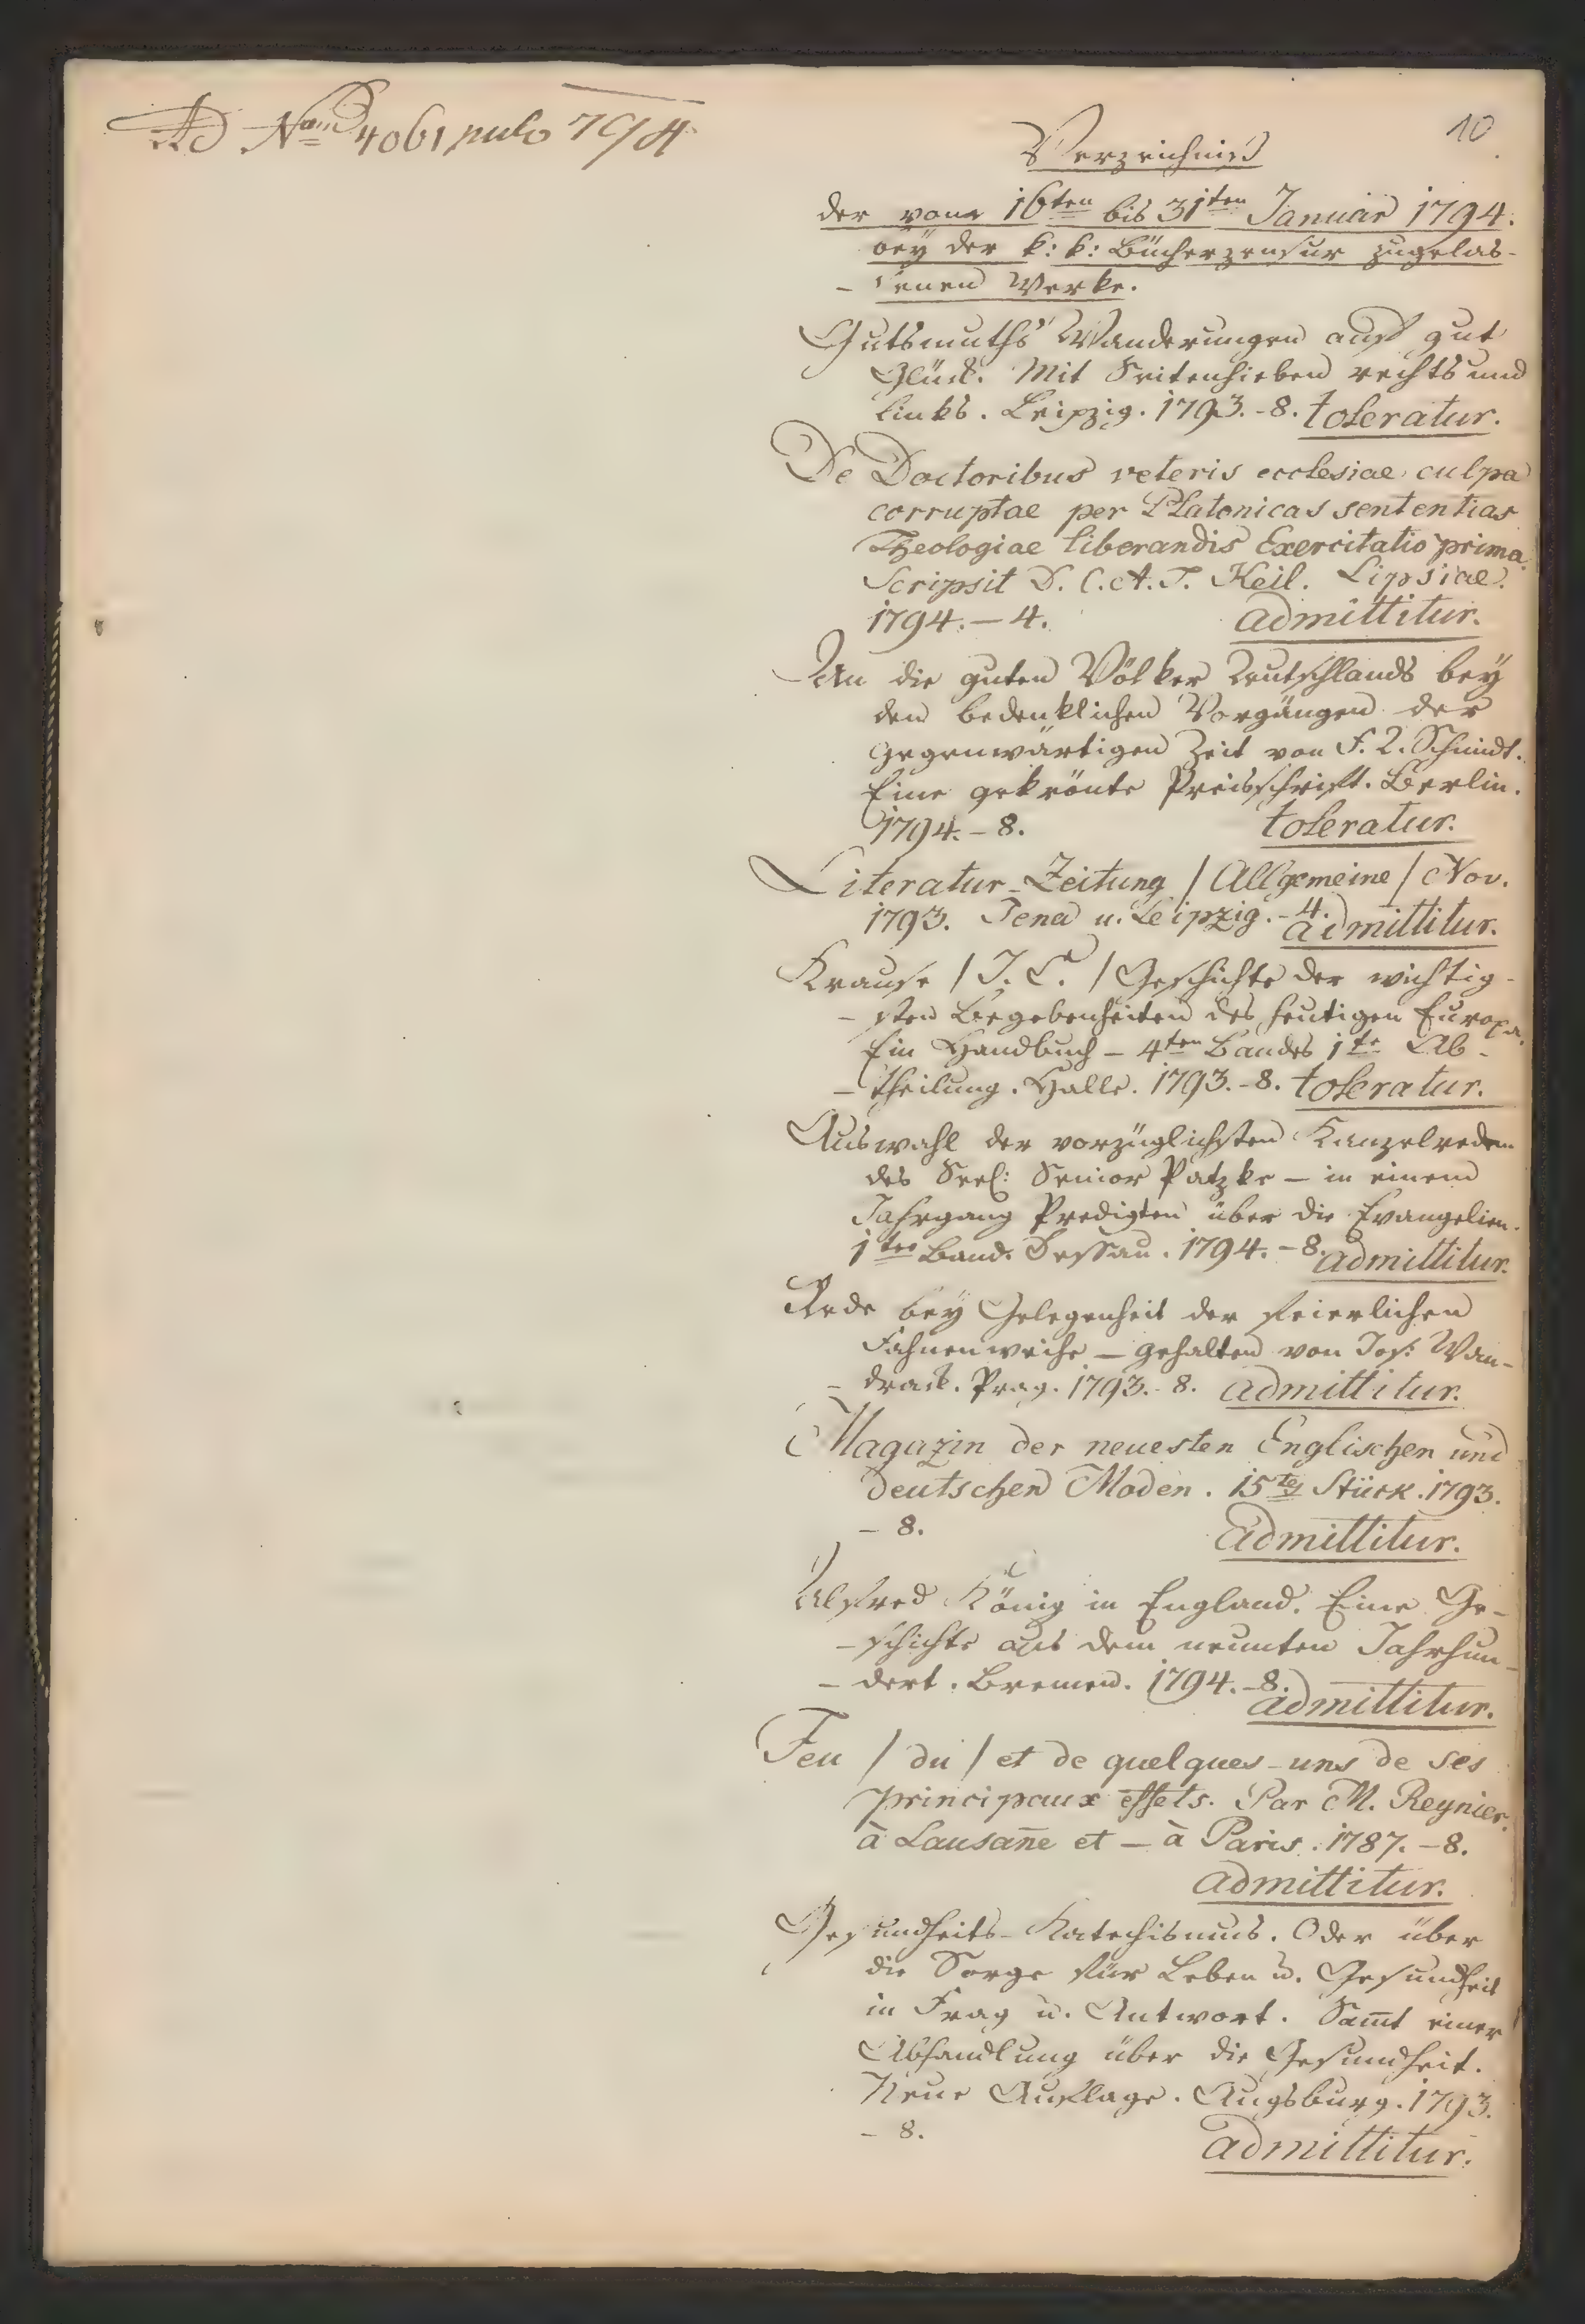 Ad Num 4061 1794
10
Verzeichniß
der vom 16ten bis 31ten Januar 1794.
bey der k: k: Bücherzensur zugelas-
- senen Werke.
Gutsmuths' Wanderungen auf gut
Glück. Mit Seitenhieben rechts und
links. Leipzig. 1793. - 8. toleratur.
De Doctoribus veteris ecclesiae culpa
corruptae per Platonicas sententias
Theologiae liberandis Exercitatio prima.
Scripsit D. C. A. T. Keil. Lipsiae.
1794. - 4. admittitur.
An die guten Völker Deutschlands bey
den bedenklichen Vorgängen der
gegenwärtigen Zeit von F. L. Schmidt.
Eine gekrönte Preisschrift. Berlin.
1794. - 8. toleratur.
Literatur-Zeitung / Allgemeine / Nov.
1793. Jena u. Leipzig. - 4. admittitur.
Krause / J. C. / Geschichte der wichtig-
- sten Begebenheiten des heutigen Europa.
Ein Handbuch - 4ten Bandes 1te Ab-
- theilung. Halle. 1793. - 8. toleratur.
Auswahl der vorzüglichsten Kanzelreden
des Seel: Senior Patzke - in einem
Jahrgang Predigten über die Evangelien.
1ter Band. Dessau. 1794. - 8. admittitur.
Rede bey Gelegenheit der feierlichen
Fahnenweihe - gehalten von Jos: Wan-
- drack. Prag. 1793. - 8. admittitur.
Magazin der neuesten Englischen und
deutschen Moden. 15tes Stück. 1793.
- 8. admittitur.
Alfred König in England. Eine Ge-
- schichte aus dem neunten Jahrhun-
- dert. Bremen. 1794. - 8. admittitur.
Feu / du / et de quelques-uns de ses
principaux effets. Par M. Reynier.
à Lausan̄e et - à Paris. 1787. - 8.
admittitur.
Gesundheits-Katechismus. Oder über
die Sorge für Leben u. Gesundheit
in Frag u. Antwort. Sam̄t einer
Abhandlung über die Gesundheit.
Neue Auflage. Augsburg. 1793.
- 8. admittitur.